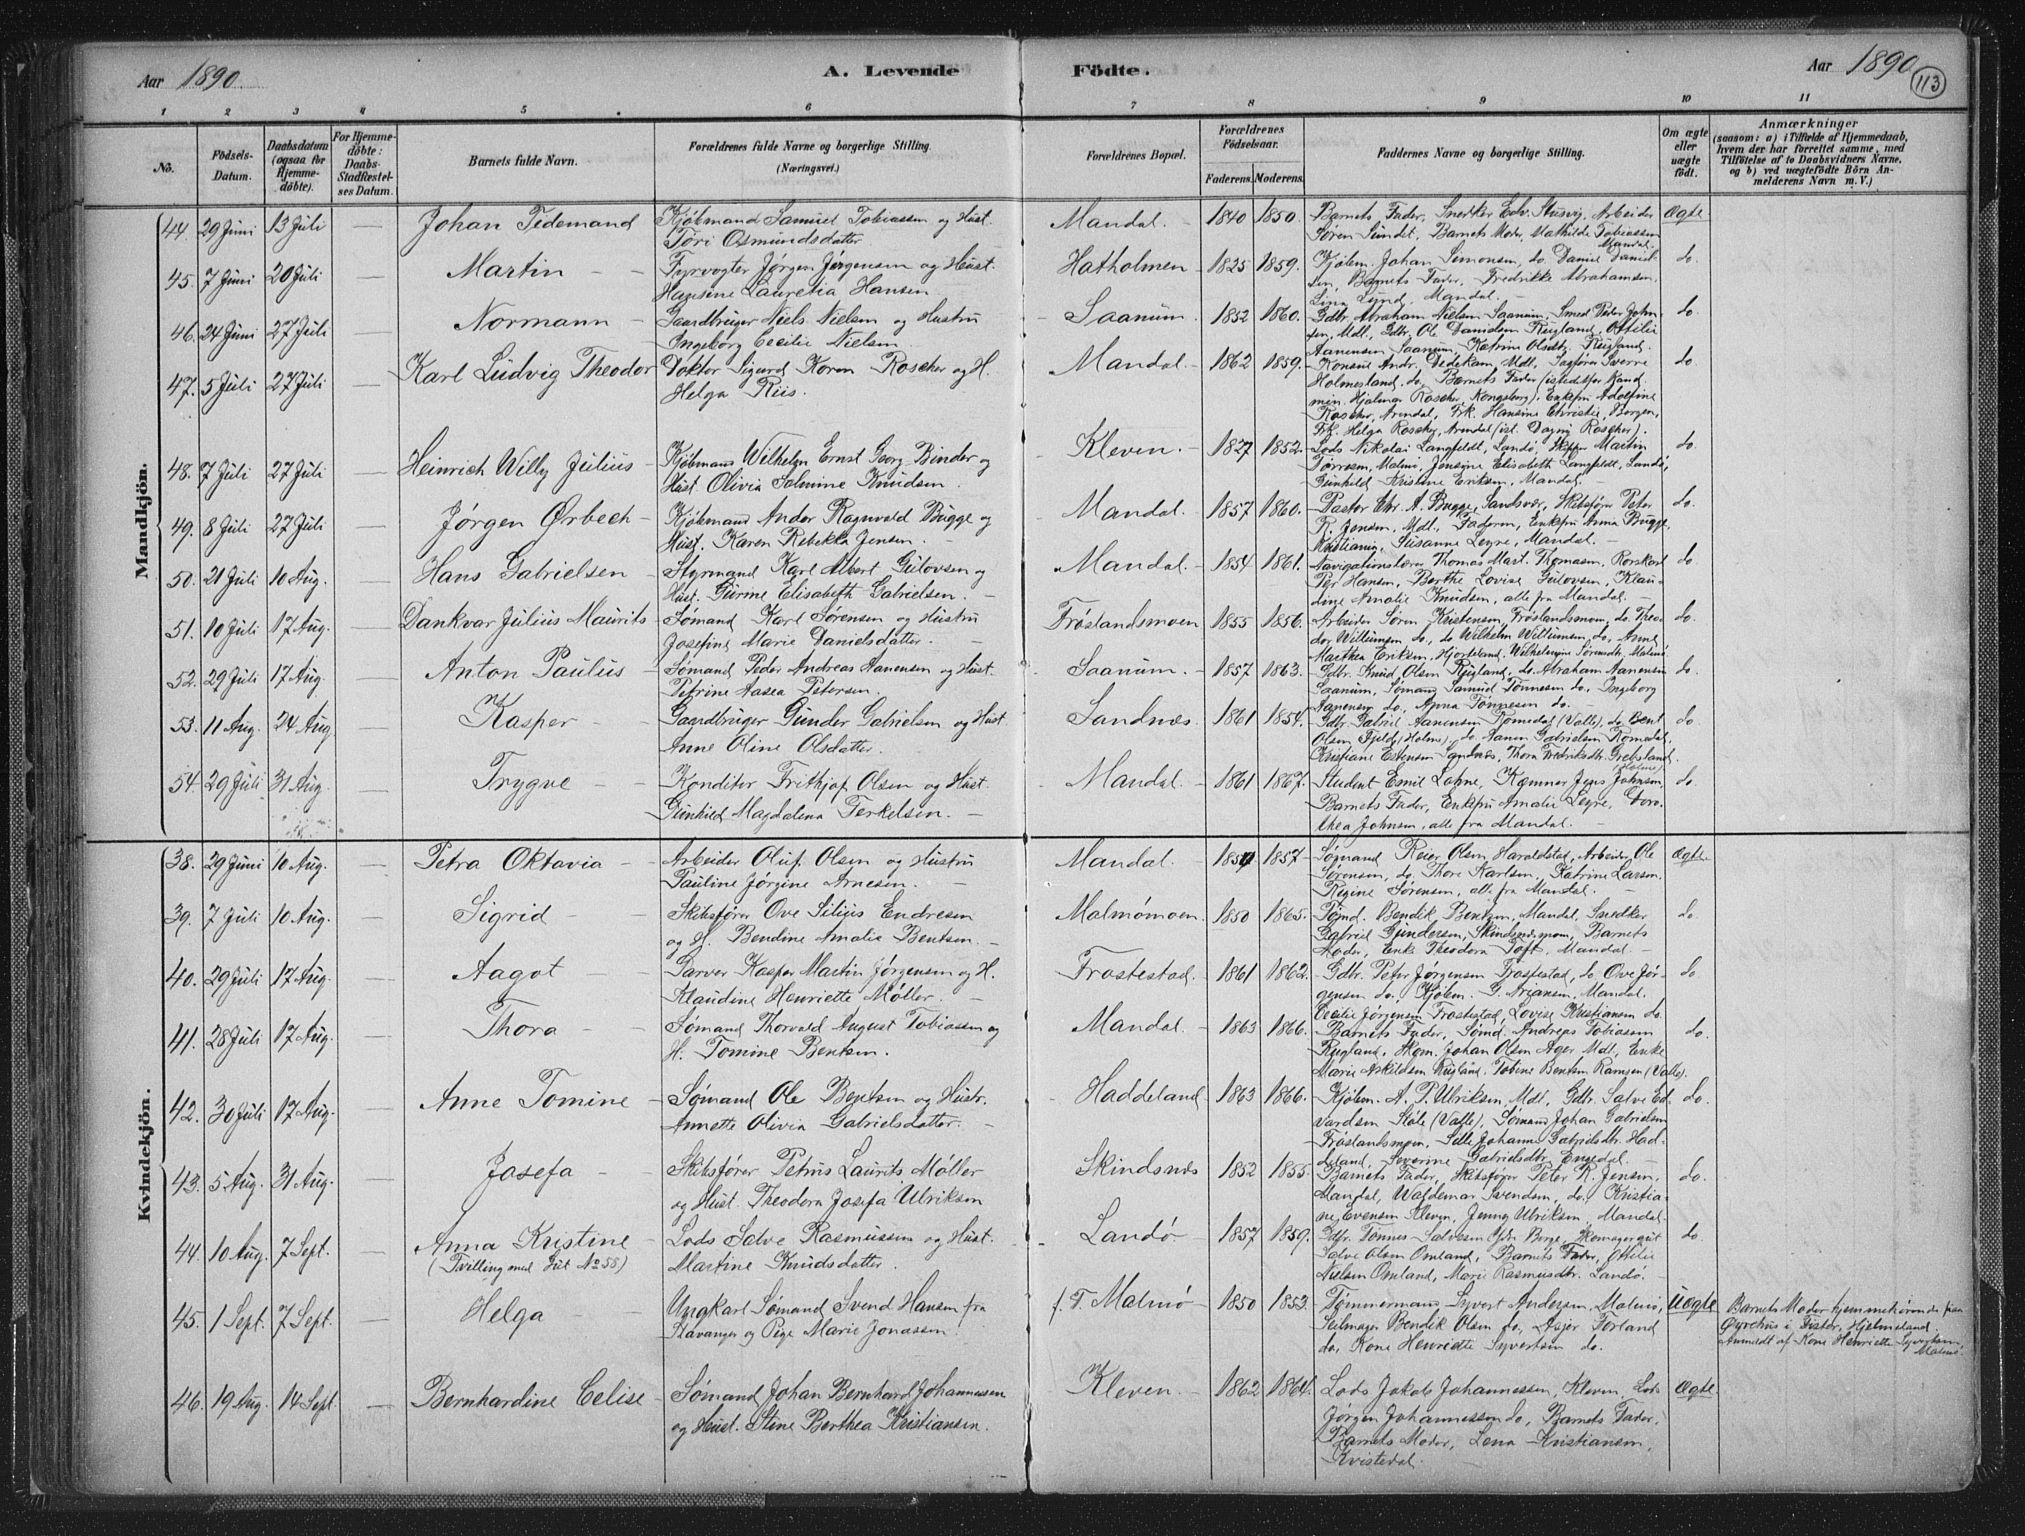 Aar 1890. A. Levende Födte. Aar 1890
113
1 2 3 4 5 6 7 8 9 10 11
No. Födsels-Datum. Daabsdatum (ogsaa for Hjemmedöbte). For Hjemmedöbte: Daabs-Stadfæstelses Datum. Barnets fulde Navn. Forældrenes fulde Navne og borgerlige Stilling. (Næringsvei.) Forældrenes Bopæl. Forældrenes Födselsaar. Faderens. Moderens. Faddernes Navne og borgerlige Stilling. Om ægte eller uægte födt. Anmærkninger (saasom: a) i Tilfælde af Hjemmedaab, hvem der har forrettet samme, med Tilföielse af to Daabsvidners Navne, og b) ved uægtefödte Börn Anmelderens Navn m. V.)
Mandkjön.
44. 29 Juni 13 Juli — Johan Tidemand Kjøbmand Samuel Tobiassen og Hust. Mandal. 1840 1850. Barnets Fader, Snedker Edv. Stusvig, Arbeider Ægte
Tori Osmundsdatter Søren Sundet, Barnets Moder, Mathilde Tobiassen Mandal.
45. 7 Juni 20 Juli — Martin Fyrvogter Jørgen Jørgensen og Hust. Hatholmen 1825 1859. Kjøbm. Johan Simonsen, do. Daniel Daniel- do.
Hansine Lauretia Hansen sen, Barnets Fader, Fredrikke Abrahamsen,
Lina Lund, Mandal.
46. 24 Juni 27 Juli — Normann Gaardbruger Niels Nielsen og Hustru Saanum. 1852 1860. Gdbr. Abraham Nielsen Saanum, Smed Peder John- do.
Ingeborg Cecilie Nielsen. sen, Mdl., Gdbr. Ole Danielsen Rugland, Ottilie
Aanensen Saanum, Katrine Olsdtr. Rugland.
47. 5 Juli 27 Juli — Karl Ludvig Theodor Doktor Sigurd Koren Roscher og H. Mandal. 1862 1859. Konsul Andr. Dedekam, Mdl., Sagfører Sverre do.
Helga Riis. Holmesland, do., Barnets Fader (istedetfor Kand.
min. Hjalmar Roscher, Kongsberg), Enkefru Adolfine
Roscher, Arendal, Frk. Hansine Christie, Bergen,
Frk. Helga Roscher, Arendal (ist. Dagny Roscher).
48. 7 Juli 27 Juli — Heinrich Willy Julius Kjøbmand Wilhelm Ernst Georg Binder og Kleven. 1827 1852. Lods Nikolai Langfeldt, Landø, Skipper Martin do.
Hust. Olivia Salmine Knudsen. Tørresen, Malmø, Jensine Elisabeth Langfeldt, Landø,
Gunhild Kristine Eriksen, Mandal.
49. 8 Juli 27 Juli — Jørgen Ørbech Kjøbmand Andor Ragnvald Bugge og Mandal. 1857 1860. Pastor Chr. A. Bugge, Sandsvær, Skibsfører Peter do.
Hust. Karen Rebekka Jensen. R. Jensen, Mdl., Faderen, Enkefru Anna Bugge,
Kristiania, Susanne Leyre, Mandal.
50. 21 Juli 10 Aug. — Hans Gabrielsen Styrmand Karl Albert Gulovsen og Mandal. 1854 1861. Navigationslærer Thomas Mart. Thomasen, Rorskarl do.
Hust. Gurine Elisabeth Gabrielsen. Per Hansen, Berthe Lovise Gulovsen, Klau-
dine Amalie Knudsen, alle fra Mandal.
51. 10 Juli 17 Aug. — Dankvar Julius Maurits Sømand Karl Sørensen og Hustru Frøslandsmoen 1855 1856. Arbeider Søren Kristensen, Frøslandsmoen, do. Theo- do.
Josefine Marie Danielsdatter. dor Willumsen do., do Wilhelm Willumsen, do, Anne
Marthea Eriksen, Hjorteland, Wilhelmine Sørensdtr. Malmø.
52. 29 Juli 17 Aug. — Anton Paulius Sømand Peder Andreas Aanensen og Hust. Saanum. 1857 1863. Gdbr. Knud Olsen Rugland, do. Abraham Aanensen do.
Petrine Aasea Petersen. Saanum, Sømand Samuel Tønnesen do., Ingeborg
Aanensen do., Anna Tønnesen do.
53. 11 Aug. 24 Aug — Kasper Gaardbruger Gunder Gabrielsen og Hust. Sandnæs. 1861 1854. Gdbr. Gabriel Aanensen Romedal (Valle), do. Bent do.
Anne Oline Olsdatter. Olsen Fjeld, (Holme), do. Aanen Gabrielsen Romedal,
Kristiane Estensen Sandnæs, Thora Fredriksdtr. Grebsland (Holme).
54. 29 Juli 31 Aug. — Trygve Konditor Frithjof Olsen og Hust. Mandal. 1861 1867. Student Emil Lohne, Kæmner Jens Johnsen, do.
Gunhild Magdalena Terkelsen. Barnets Fader, Enkefru Amalie Leyre, Doro-
thea Johnsen, alle fra Mandal.
Kvindekjön.
38. 29 Juni 10 Aug. — Petra Oktavia Arbeider Oluf Olsen og Hustru Mandal. 1857 Sømand Reier Olsen Haraldstad, Arbeider Ole Ægte.
Pauline Jørgine Arnesen. Sørensen, do. Thore Karlsen, Katrine Larsen,
Regine Sørensen, alle fra Mandal.
39. 7 Juli 10 Aug. — Sigrid Skibsfører Ove Silius Endresen Malmømoen. 1850 1865. Tømd. Bendik Bentsen, Mandal, Snedker do.
og H. Bendine Amalie Bentsen. Gabriel Gundersen, Skindsnæsmoen, Barnets
Moder, Enke Theodora Toft, Mandal.
40. 29 Juli 17 Aug. — Aagot Garver Kasper Martin Jørgensen og H. Frostestad. 1861 1862. Gdbr. Peter Jørgensen Frostestad, do Ove Jør- do.
Klaudine Henriette Møller. gensen do., Kjøbm. G. Ariansen, Mandal.
Cecilie Jørgensen Frostestad, Lovise Kristiansen do.
41. 28 Juli 17 Aug. — Thora Sømand Thorvald August Tobiassen og Mandal. 1863 1866. Barnets Fader, Sømd. Andreas Tobiassen do.
H. Tomine Bentsen. Rugland, Skom. Johan Olsen Ager Mdl., Enke
Marie Askildsen Rugland, Tobine Bentsen Ramsen (Valle).
42. 30 Juli 17 Aug. — Anne Tomine Sømand Ole Bentsen og Hustr. Haddeland 1863 1866. Kjøbm. A. P. Ulriksen, Mdl., Gdbr. Salve Ed- do.
Annette Olivia Gabrielsdatter. vardsen Støle (Valle), Sømand Johan Gabrielsen
Frøslandsmoen, Sille Johanne Gabrielsdtr. Had-
deland, Severine Gabrielsdtr. Engedal.
43. 5 Aug. 31 Aug. — Josefa Skibsfører Petrus Laurits Møller Skindsnæs 1852 1855. Barnets Fader, Skibsfører Peter R. Jensen, do.
og Hust. Theodora Josefa Ulriksen Mandal, Waldemar Svendsen, do., Kristia-
ne Evensen Kleven, Jenny Ulriksen, Mandal.
44. 10 Aug. 7 Sept. — Anna Kristine Lods Salve Rasmussen og Hust. Landø 1857 1859. Gdbr. Tønnes Salvesen Berge, do.
(Tvilling med Gut No 55) Martine Knudsdatter. Salve Olsen Omland, Barnets Fader, Ottilie
Nielsen Omland, Marie Rasmusdtr. Landø.
45. 1 Sept. 7 Sept. — Helga Ungkarl Sømand Svend Hansen fra f. T. Malmø 1850 1853. Tømmermand Syvert Andersen, Malmø, Uægte Barnets Moder hjemmehørende paa
Stavanger og Pige Marie Jonassen. Seilmager Bendik Olsen do., Asjer Forland Øyrehus i Fister, Hjelmeland.
do, Kone Henriette Syvertsen do. Anmeldt af Kone Henriette Syvertsen Malmø.
46. 19 Aug. 14 Sept. — Bernhardine Celise Sømand Johan Bernhard Johannessen Kleven. 1862 1864. Lods Jakob Johannessen, Kleven, Lods Ægte
og Hust. Stine Berthea Kristiansen. Jørgen Johannessen do., Barnets Fader,
Barnets Moder, Lena Kristiansen,
Kvistedal.